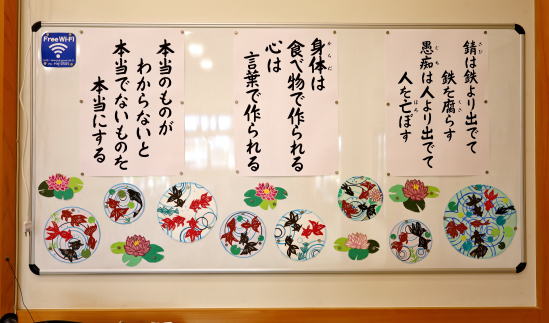 Free Wi-Fi
さび
錆は鉄より出でて
くさ
鉄を腐らす
ぐち
愚痴は人より出でて
ほろ
人を亡ぼす
からだ
身体は
食べ物で作られる
心は
言葉で作られる
本当のものが
わからないと
本当でないものを
本当にする